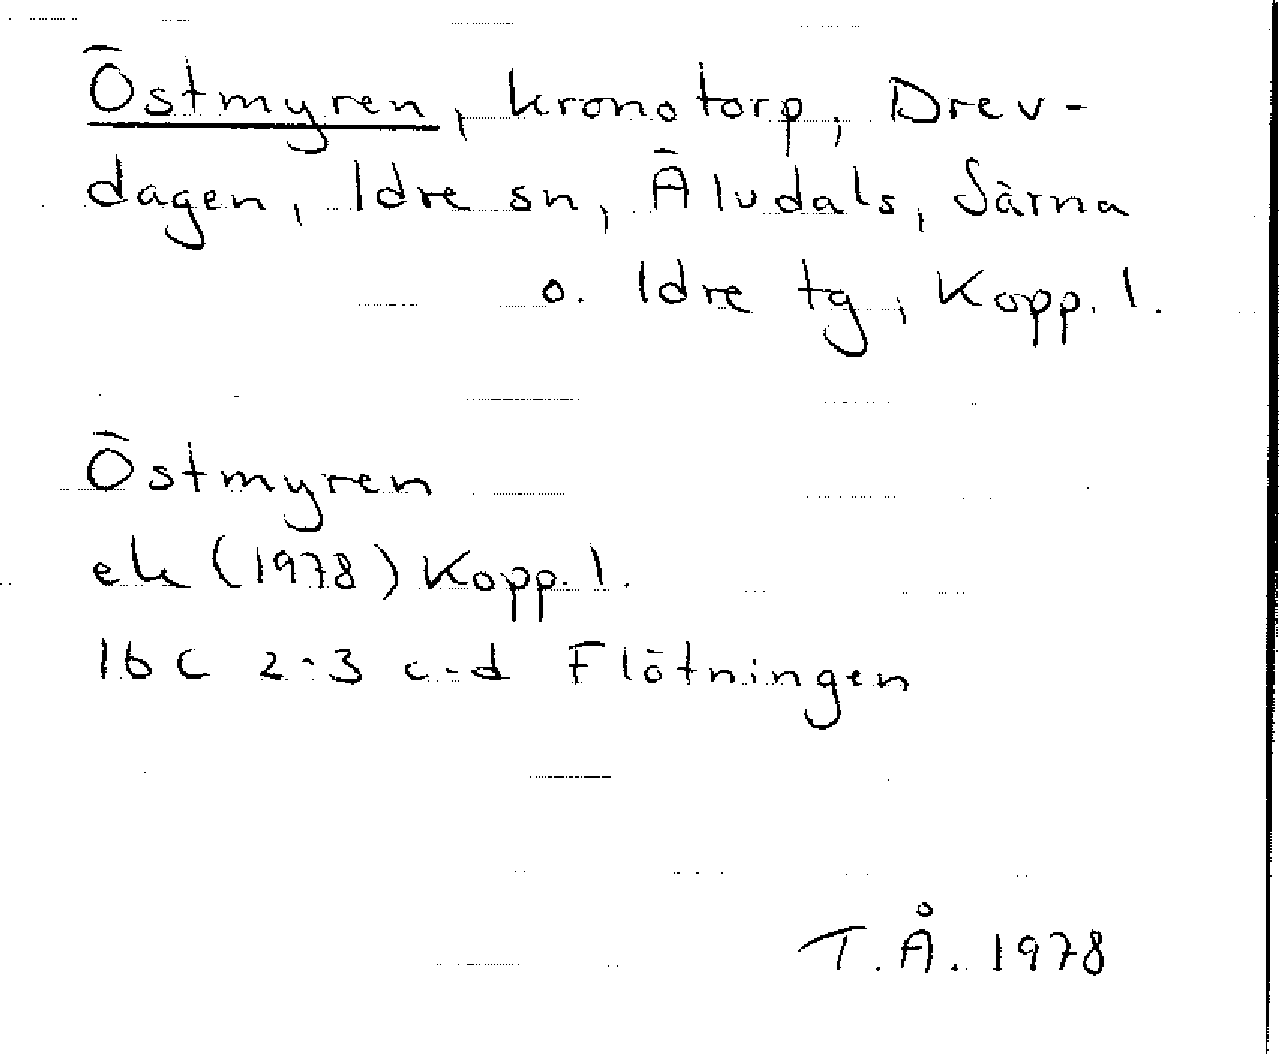 Östmyren, kronotorp, Drev-
dagen, Idre sn, Älvdals, Särna
o. Idre tg, Kopp. l.
Östmyren
ek (1978) Kopp. l.
16 C 2-3 c-d Flötningen
T.Å. 1978